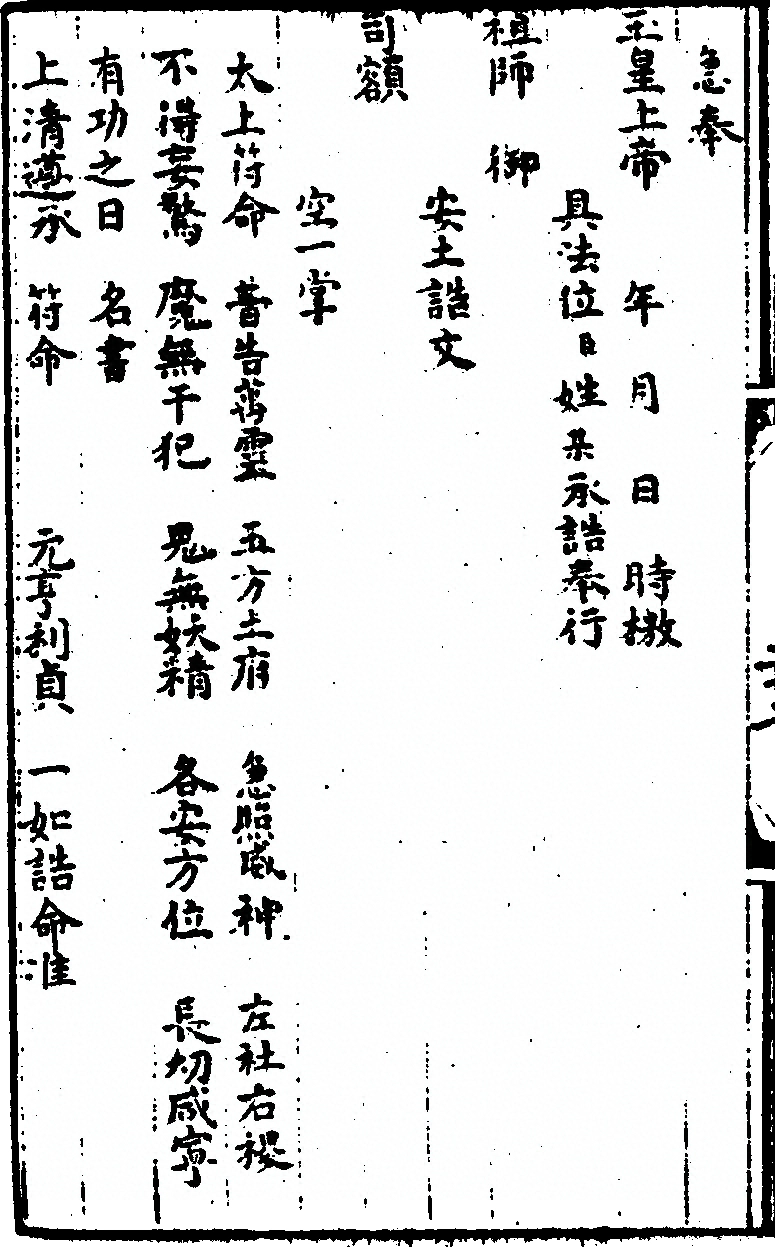 急奉
玉皇上帝 年 月 日 時檄
具法位臣姓某承誥奉行
祖師 御
安土誥文
司額
空一掌
太上符命 普告萬靈 五方土府 急照威神 左社右稷
不得妄驚 魔無干犯 鬼無妖精 各安方位 長切咸寧
有功之日 名書
上清遵承 符命 元亨利貞 一如誥命准